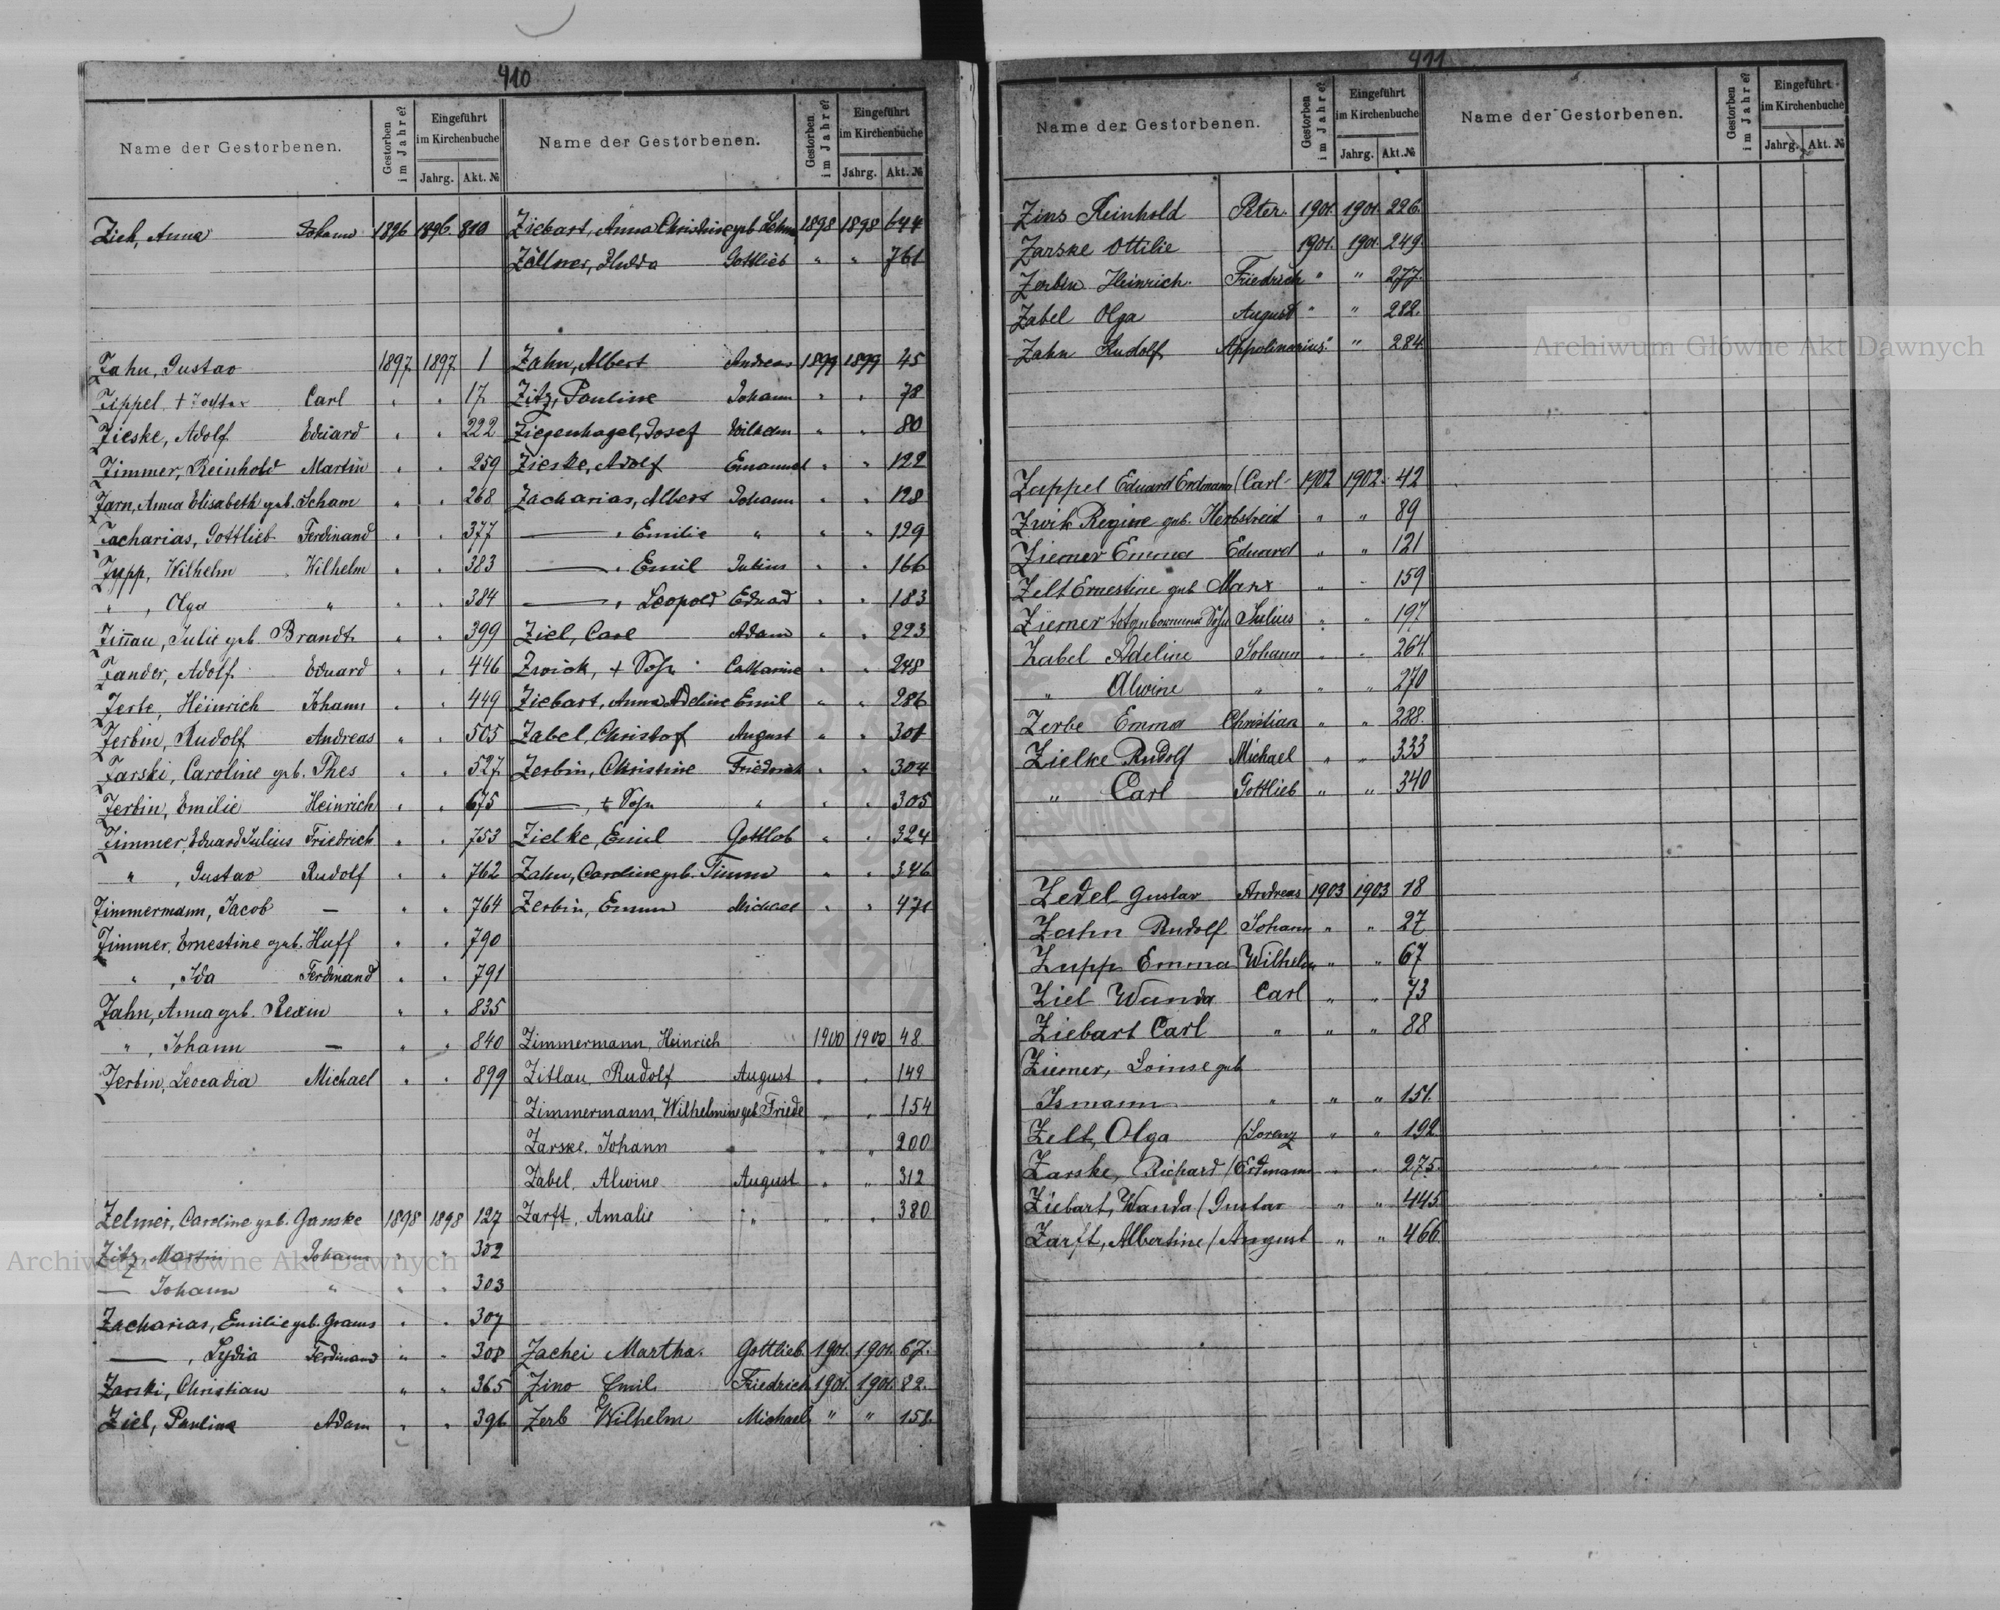 410
Name der Gestorbenen.
Gestorben im Jahre?
Eingeführt im Kirchenbuche
Jahrg. Akt. №
Zieh, Anna Johann 1896 1896 810
Zahn, Gustav 1897 1897 1
Zippel + Tochter Carl " " 17
Zieske, Adolf Eduard " " 222
Zimmer, Reinhold Martin " " 259
Zarn, Anna Elisabeth geb. Scham " " 268
Zacharias, Gottlieb Ferdinand " " 377
Zupp, Wilhelm Wilhelm " " 383
" , Olga " " " 384
Zinnau, Julie geb. Brandt " " 399
Zander, Adolf Eduard " " 446
Zerbe, Heinrich Johann " " 449
Zerbin, Rudolf Andreas " " 505
Zarski, Caroline geb. Thes " " 527
Zerbin, Emilie Heinrich " " 675
Zimmer, Eduard Julius Friedrich " " 753
" , Gustav Rudolf " " 762
Zimmermann, Jacob — " " 764
Zimmer, Ernestine geb. Huff " " 790
" , Ida Ferdinand " " 791
Zahn, Anna geb. Rexin " " 835
" , Johann — " " 840
Zerbin, Leocadia Michael " " 899
Zelmer, Caroline geb. Ganske 1898 1898 127
Zitz, Martin Johann " " 302
— Johann " " " 303
Zacharias, Emilie geb. Grams " " 307
— , Lydia Ferdinand " " 308
Zarski, Christian " " 365
Ziel, Pauline Adam " " 396
Name der Gestorbenen.
Gestorben im Jahre?
Eingeführt im Kirchenbuche
Jahrg. Akt. №
Ziebart, Anna Christine geb. 1898 1898 644
Zöllner, Hulda Gottlieb " " 761
Zahn, Albert Andreas 1899 1899 45
Zitz, Pauline Johann " " 78
Ziegenhagel, Josef Wilhelm " " 80
Zieske, Adolf Emanuel " " 122
Zacharias, Albert Johann " " 128
— , Emilie " " " 129
— , Emil Julius " " 166
— , Leopold Eduard " " 183
Ziel, Carl Adam " " 223
Zwick, + Sohn Catharine " " 248
Ziebart, Anna Adeline Emil " " 286
Zabel, Christof August " " 301
Zerbin, Christine Friedrich " " 304
— , + Sohn " " " 305
Zielke, Emil Gottlob " " 324
Zahn, Caroline geb. Timm " " 346
Zerbin, Emma Michael " " 471
Zimmermann, Heinrich 1900 1900 48
Zitlau, Rudolf August " " 149
Zimmermann, Wilhelmine geb. Friede " " 154
Zarske, Johann " " 200
Zabel, Alwine August " " 312
Zarft, Amalie " " " 380
Zachei Martha. Gottlieb 1901. 1901. 67.
Zino Emil Friedrich 1901. 1901. 82.
Zerb Wilhelm Michael " " 158.
411
Name der Gestorbenen.
Gestorben im Jahre?
Eingeführt im Kirchenbuche
Jahrg. Akt. №
Zins Reinhold Peter. 1901. 1901. 226.
Zarske Ottilie 1901. 1901. 249.
Zerbin Heinrich. Friedrich " " 277.
Zabel Olga August " " 282.
Zahn Rudolf Appolinarius " " 284
Zappel Eduard Erdmann Carl 1902 1902. 42
Zwik Regine geb. Herbstreit " " 89
Ziemer Emma Eduard " " 121
Zelt Ernestine geb Marx " " 159
Ziemer totgeborener Sohn Julius " " 197
Zabel Adeline Johann " " 264
" Alwine " " " 270
Zerbe Emma Christian " " 288.
Zielke Rudolf Michael " " 333
" Carl Gottlieb " " 340
Zedel Gustav Andreas 1903 1903 18
Zahn Rudolf Johann " " 27
Zupp Emma Wilhelm " " 67
Ziel Wanda Carl " " 73
Ziebart Carl " " " 88
Ziemer, Louise geb
Ismann " " " 151.
Zelt, Olga Lorenz " " 192
Zarske, Richard Erdmann " " 275.
Ziebart, Wanda Gustav " " 445
Zarft, Albertine August " " 466
Name der Gestorbenen.
Gestorben im Jahre?
Eingeführt im Kirchenbuche
Jahrg. Akt. №
Archiwum Główne Akt Dawnych
Archiwum Główne Akt Dawnych